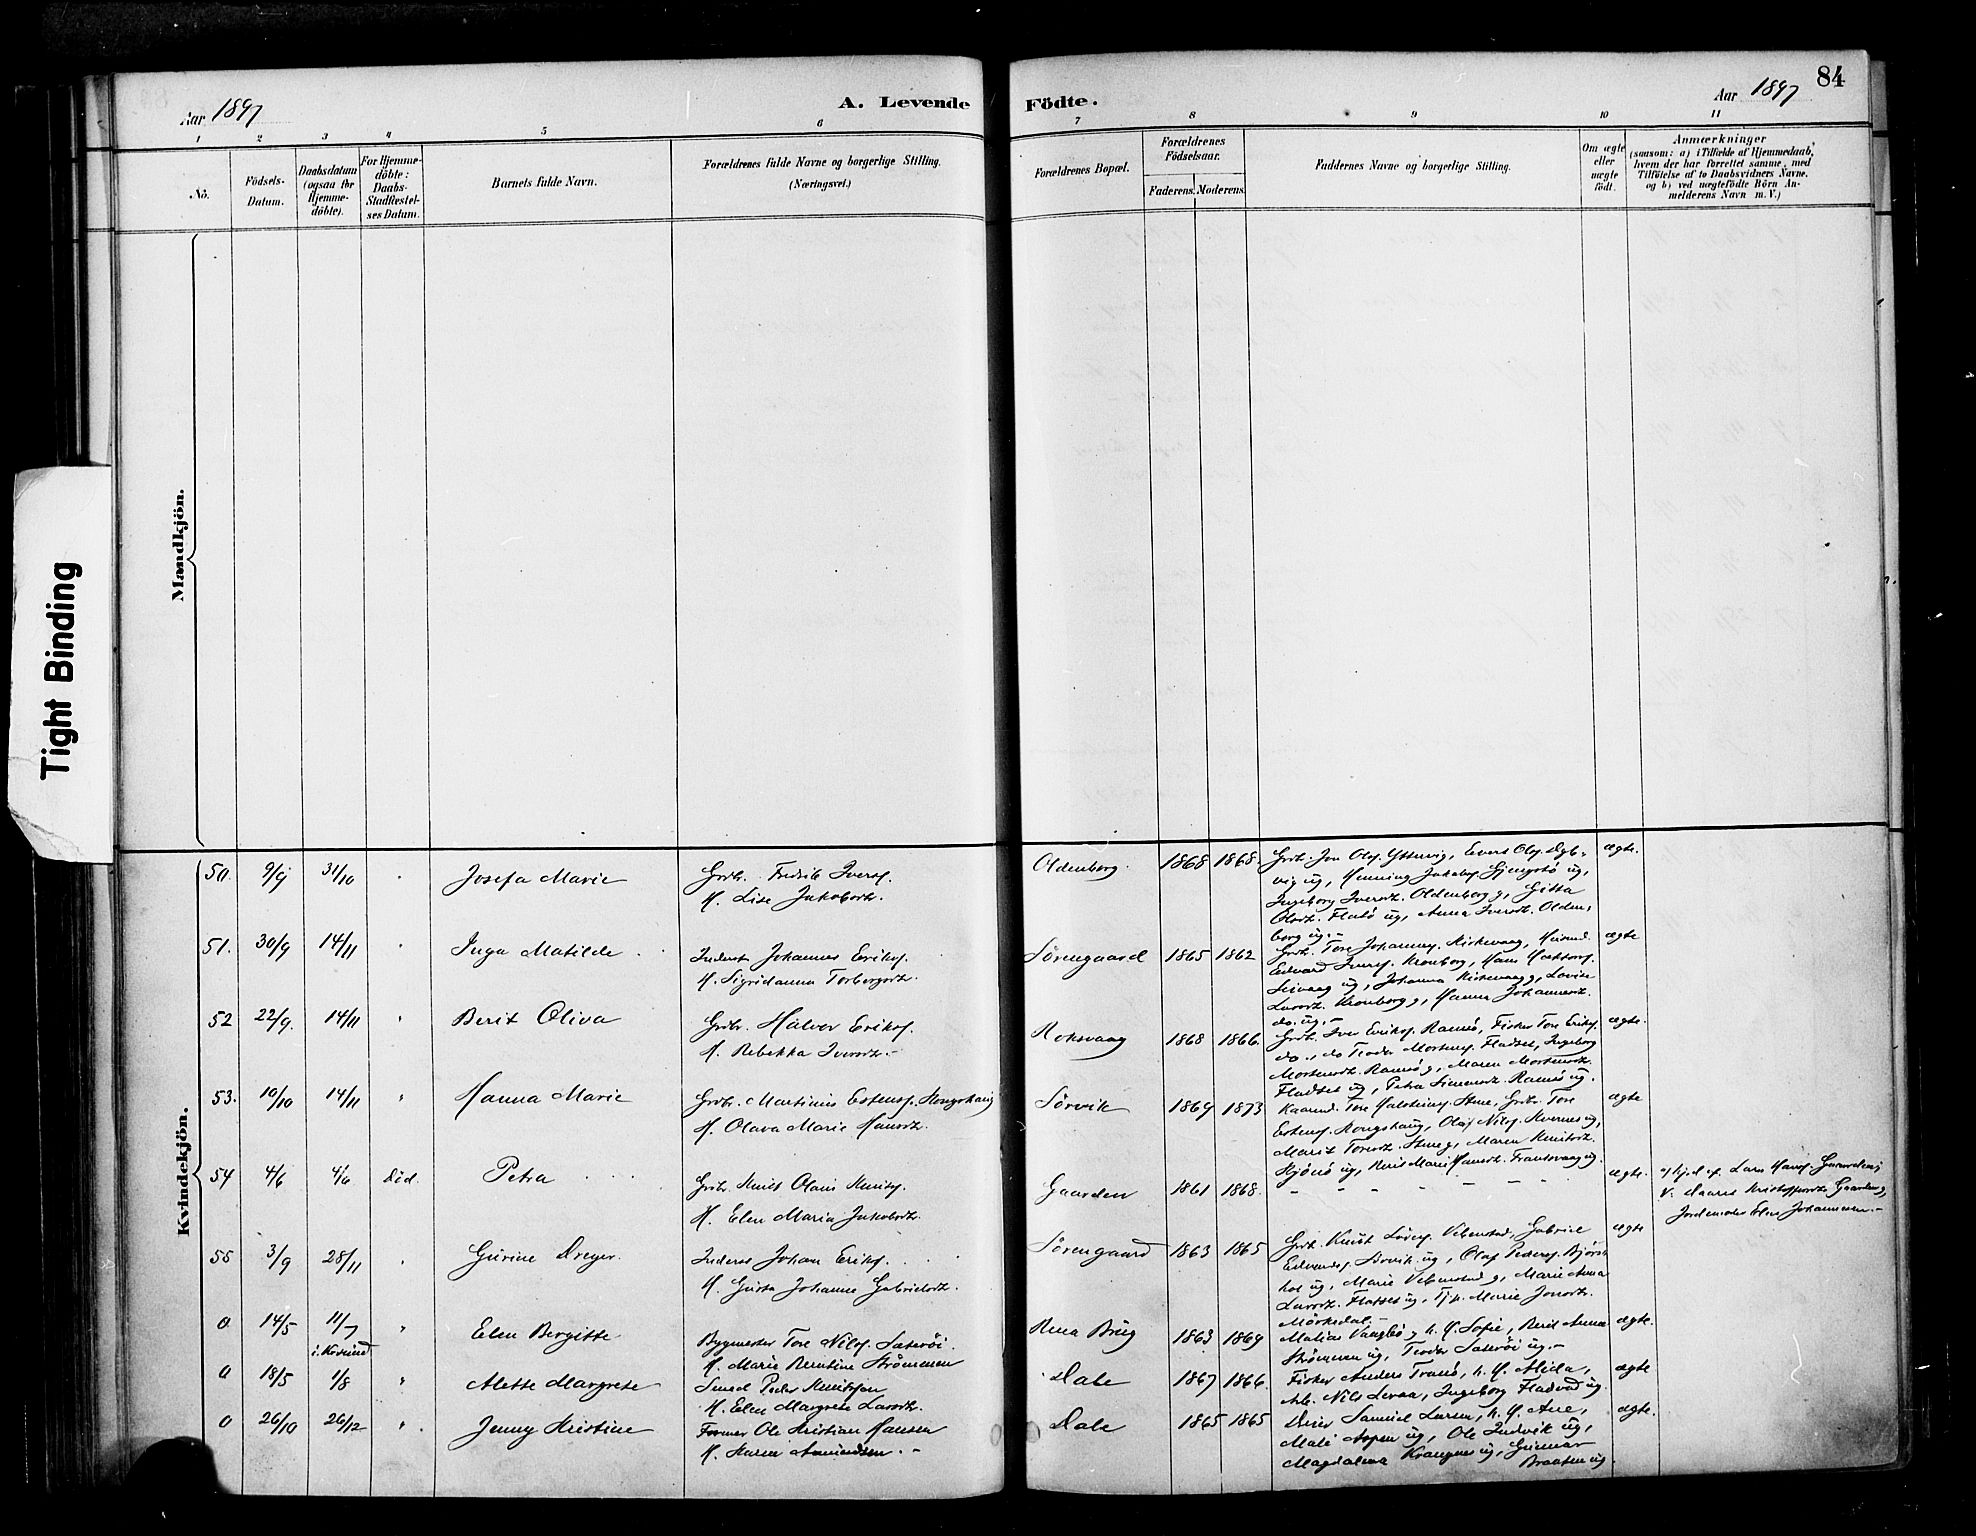 Aar 1897
A. Levende
Födte.
Aar 1897
84
1 2 3 4 5 6 7 8 9 10 11
No.
Födsels-
Datum.
Daabsdatum
(ogsaa for
Hjemme-
döbte).
For Hjemme-
döbte:
Daabs-
Stadfæstel-
ses Datum.
Barnets fulde Navn.
Forældrenes fulde Navne og borgerlige Stilling.
(Næringsvei.)
Forældrenes Bopæl.
Forældrenes
Födselsaar.
Faderens. Moderens.
Faddernes Navne og borgerlige Stilling.
Om ægte
eller
uægte
födt.
Anmærkninger
(saasom: a) i Tilfælde af Hjemmedaab,
hvem der har forrettet samme, med
Tilföielse af to Daabsvidners Navne,
og b) ved uægtefödte Börn An-
melderens Navn m. V.)
Tight Binding
Mandkjön.
Kvindekjön.
50. 9/9 31/10 " Josefa Marie
Grdbr. Fredrik Iversf.
H. Lise Jakobsdtr.
Oldenborg. 1868 1868.
Grdbr. Jon Olsf. Ystevig, Evert Olsf.
vig ug, Henning Jakobsf. ug,
Ingeborg Iversdt. Oldenborg g, Gitta
Olsdt. Fladsö ug, Anna Iversdt. Olden-
borg ug.-
ægte.
51. 30/9 14/11 " Inga Matilde
Inderst Johannes Eriksf.
H. Sigridanna Torbergsdt.
Sörengaard 1865 1862
Grdbr. Tore Johannesf. Kirkevaag,
Edvard Iversf. Kronborg, Hans
ug, Johanna Kirkevaag g, Lovise
Larsdt. Kronborg g, Hanna Johannesdt.
do. ug.-
ægte
52 22/9. 14/11 " Berit Oliva
Grdbr. Halvor Eriksf.
H. Rebekka Iversdt.-
Roksvaag 1868 1866.
Grdbr. Iver Eriksf. Ramsö, Fisker Tore Eriksf.
do., do Teodor Mortensf. Fladset, Ingeborg
Mortensdt. Ramsö g, Maren Mortensdt.
Fladset ug, Petra Simonsdt. Ramsö ug.
ægte.
53. 10/10 14/11 " Hanna Marie
Grdbr. Martinius Estensf. Kongshaug
H. Olava Marie Hansdt.
Sörvik 1869 1873
Kaarmd. Tore Halsteinsf. Stene, Grdbr. Tore
Estensf. Kongshaug, Olaf Nilsf. Kvernes ug,
Marit Toresdt. Stene g, Maren Knutsdt.
ug, Marie Hansdt. Frantsvaag ug.
ægte
54 4/6 4/6 Död. Petra
Grdbr. Knut Olaus Knutsf.
H. Elen Maria Jakobsdt.
Gaarden 1861 1868.
- - - - - - -
ægte.
af Lars Hansf. Gaarden g
V. Kristoffersdt. Gaarden g,
Jordemoder Elen Johannesen.-
55 3/9 28/11 " Gurine Dreyer.
Inderst Johan Eriksf.
H. Gusta Johanne Gabrielsdt.
Sörengaard 1863 1865
Grdbr. Knut Larsf. Vebenstad, Gabriel
Edvardsf. ug, Olaf Pedersf. Björs-
hol ug, Marie Vebenstad g, Marie Anna
Larsdt. Fladset ug, Tj.p. Marie Jonsdt.
Mörkedal.-
ægte
0 14/5 11/7 i. Krsund " Elen Bergitte
Bygmester Tore Nilsf. Sæteröi.
H. Marie Berntine Strömmen
Rena Brug 1863 1869
Matias Vaagbö g h. H. Sofie, Berit Anna
Strömmen ug, Teodor Sæteröi ug.-
ægte.
0 18/5 1/8 " Mette Margrete
Smed Peder Knutsson
H. Elen Margrete Larsdt.
Dale 1867 1866.
Fisker Anders Tranö, h. H. Alida,
Arb. Nils Levaa, Ingeborg Fladvad ug.
ægte
0 26/10 26/12 ". Jenny Kristine
Former Ole Kristian Hansen
H. Karen Amundsen.-
Dale 1865 1865
Samuel Larsen, h. H. Ane,
Mali Aspen ug, Ole Indvik ug,
Magdalena Krangnes ug, Gunnar
Braaten ug.
ægte.